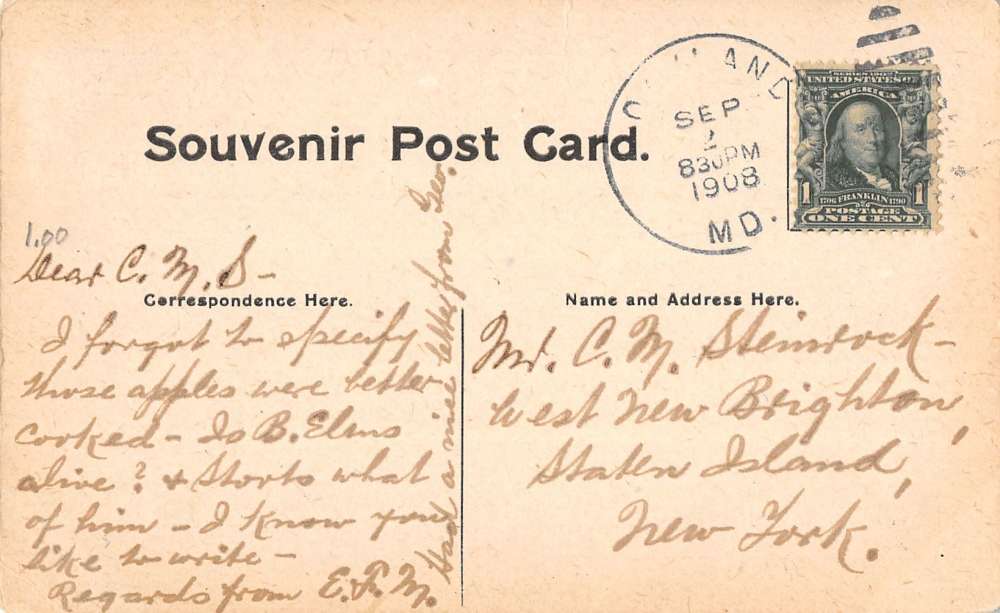 Souvenir Post Card.
OAKLAND
SEP
2
830PM
1908
MD.
SERIES 1902
UNITED STATES OF
AMERICA
1 1
1706 FRANKLIN 1790
POSTAGE
ONE CENT
1.00
Dear C. M. S-
Correspondence Here.
I forgot to specify
those apples were better
cooked - Is B. Elms
alive? & Storts what
of him - I know you
like to write -
Regards from E. F. M.
Had a nice letter from Geo.
Name and Address Here.
Mr. C. M. Steinrock -
West New Brighton,
Staten Island,
New York.